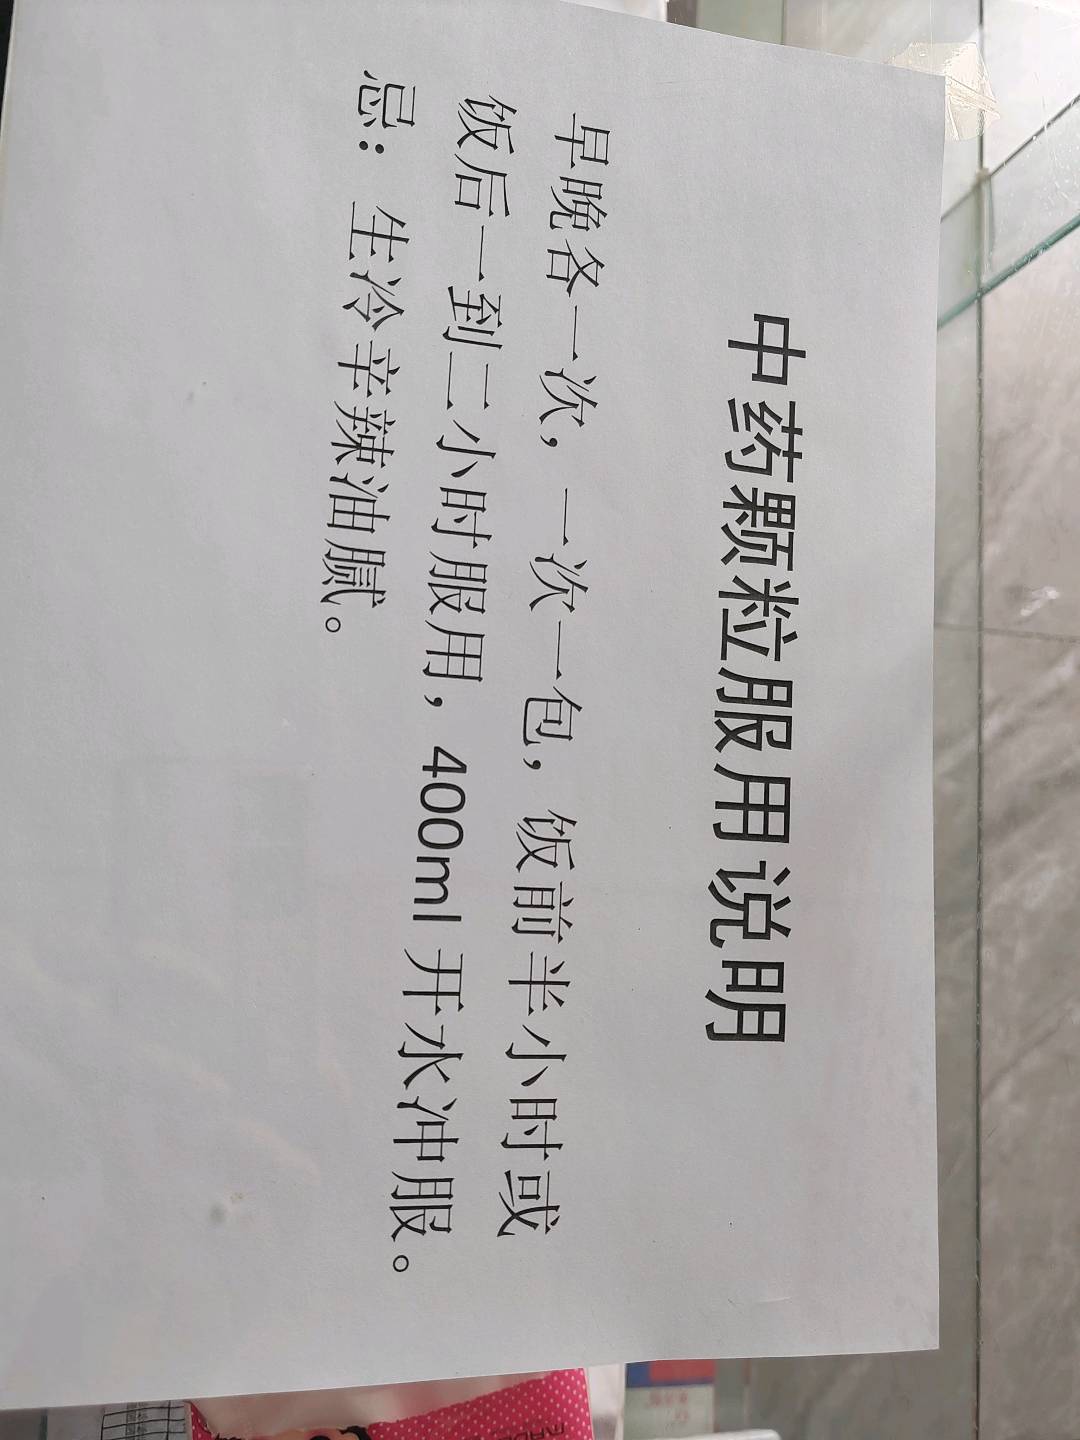 中药颗粒服用说明
早晚各一次，一次一包，饭前半小时或
饭后一到二小时服用，400ml 开水冲服。
忌：生冷辛辣油腻。